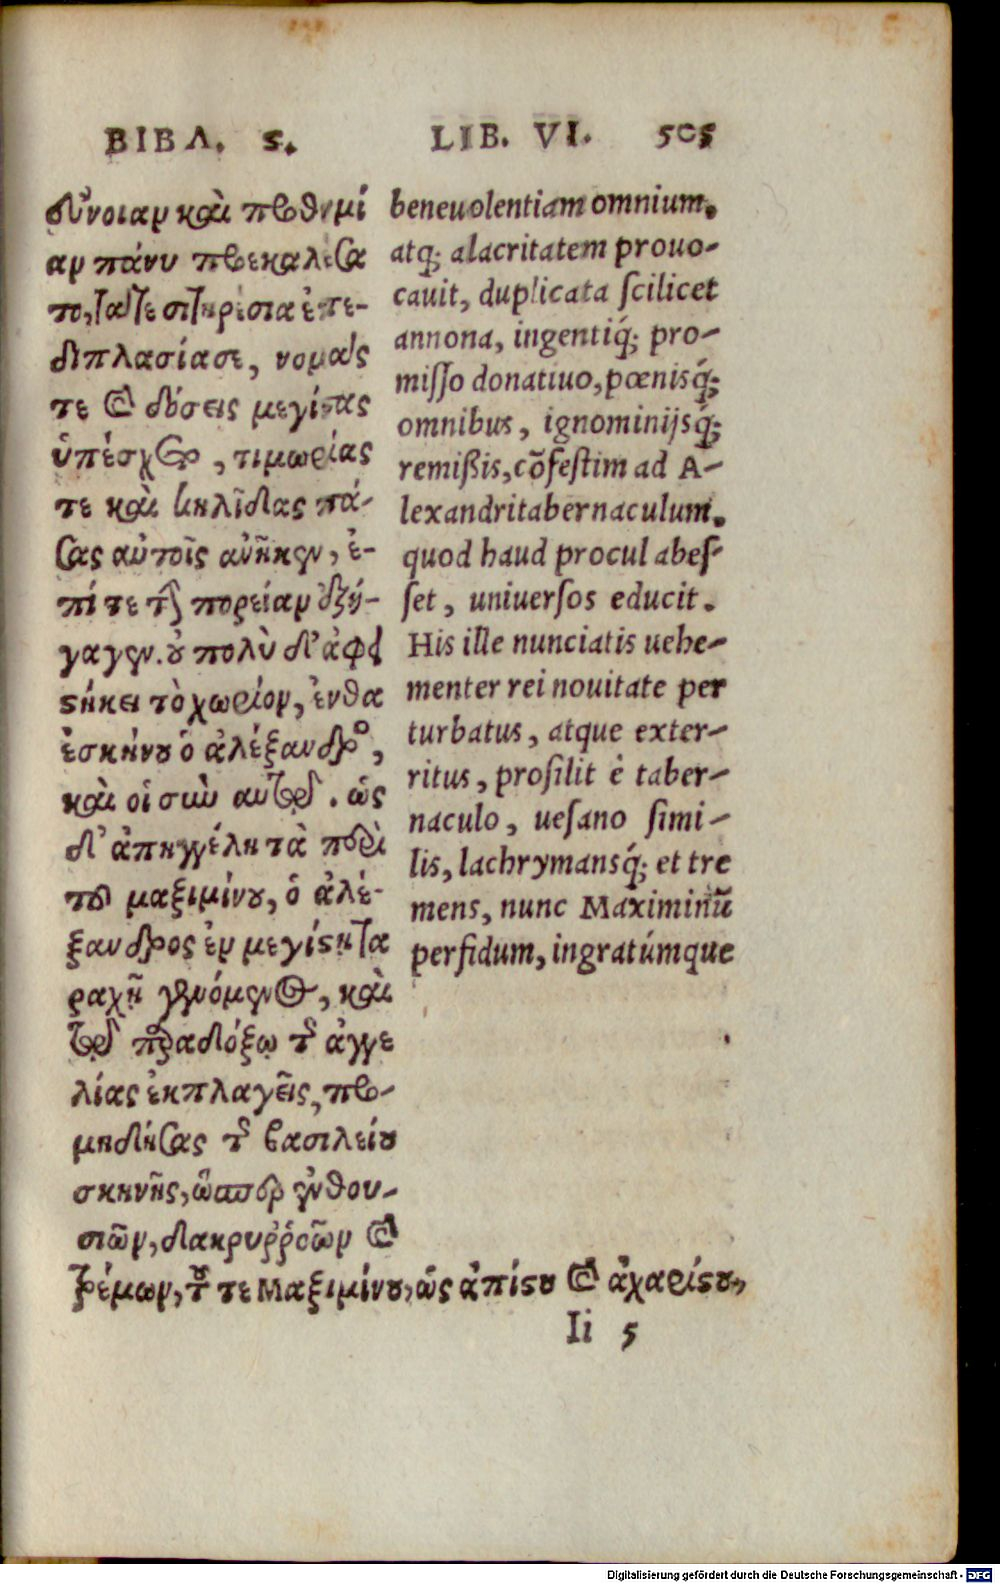 ΒΙΒΛ. ϛ.
εὔνοιαν καὶ προθυμί
αν πάνυ προεκαλέσα
το, τά τε σιτηρέσια ἐπε-
διπλασίασε, νομάς
τε καὶ δόσεις μεγίστας
ὑπέσχετο, τιμωρίας
τε καὶ κηλῖδας πά-
σας αὐτοῖς ἀνῆκεν, ἐ-
πί τε τὴν πορείαν ἐξή-
γαγεν. οὐ πολὺ δ' ἀφει
στήκει τὸ χωρίον, ἔνθα
ἐσκήνου ὁ ἀλέξανδρος,
καὶ οἱ σὺν αὐτῷ. ὡς
δ' ἀπηγγέλη τὰ περὶ
τοῦ μαξιμίνου, ὁ ἀλέ-
ξανδρος ἐν μεγίστῃ τα
ραχῇ γενόμενος, καὶ
τῷ παραδόξῳ τῆς ἀγγε
λίας ἐκπλαγεὶς, προ-
πηδήσας τῆς βασιλείου
σκηνῆς, ὥσπερ ἐνθου-
σιῶν, δακρυῤῥοῶν καὶ
τρέμων, τοῦ τε Μαξιμίνου, ὡς ἀπίστου καὶ ἀχαρίστου,
LIB. VI. 505
beneuolentiam omnium.
atq; alacritatem prouo-
cauit, duplicata ſcilicet
annona, ingentiq́; pro-
miſſo donatiuo, pœnisq́;
omnibus, ignominijsq́;
remißis, cōfeſtim ad A-
lexandri tabernaculum.
quod haud procul abeſ-
ſet, uniuerſos educit.
His ille nunciatis uehe-
menter rei nouitate per
turbatus, atque exter-
ritus, proſilit è taber-
naculo, ueſano ſimi-
lis, lachrymansq́; et tre
mens, nunc Maximinū
perfidum, ingratúmque
Ii 5
Digitalisierung gefördert durch die Deutsche Forschungsgemeinschaft - DFG